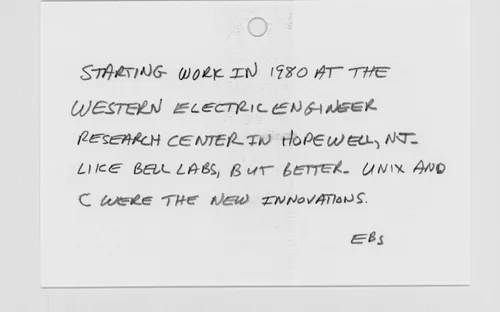 STARTING WORK IN 1980 AT THE
WESTERN ELECTRIC ENGINEER
RESEARCH CENTER IN HOPEWELL, NJ-
LIKE BELL LABS, BUT BETTER- UNIX AND
C WERE THE NEW INNOVATIONS.
EBS